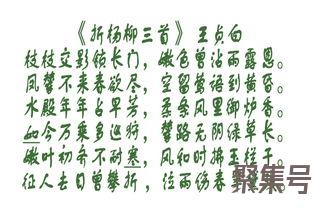 《折杨柳三首》王贞白
枝枝交影锁长门，嫩色曾沾雨露恩。
凤辇不来春欲尽，空留莺语到黄昏。
水殿年年占早芳，柔条风里御炉香。
如今万乘多巡狩，辇路无阴绿草长。
嫩叶初齐不耐寒，风和时拂玉栏干。
征人去日曾攀折，泣雨伤春
聚集号